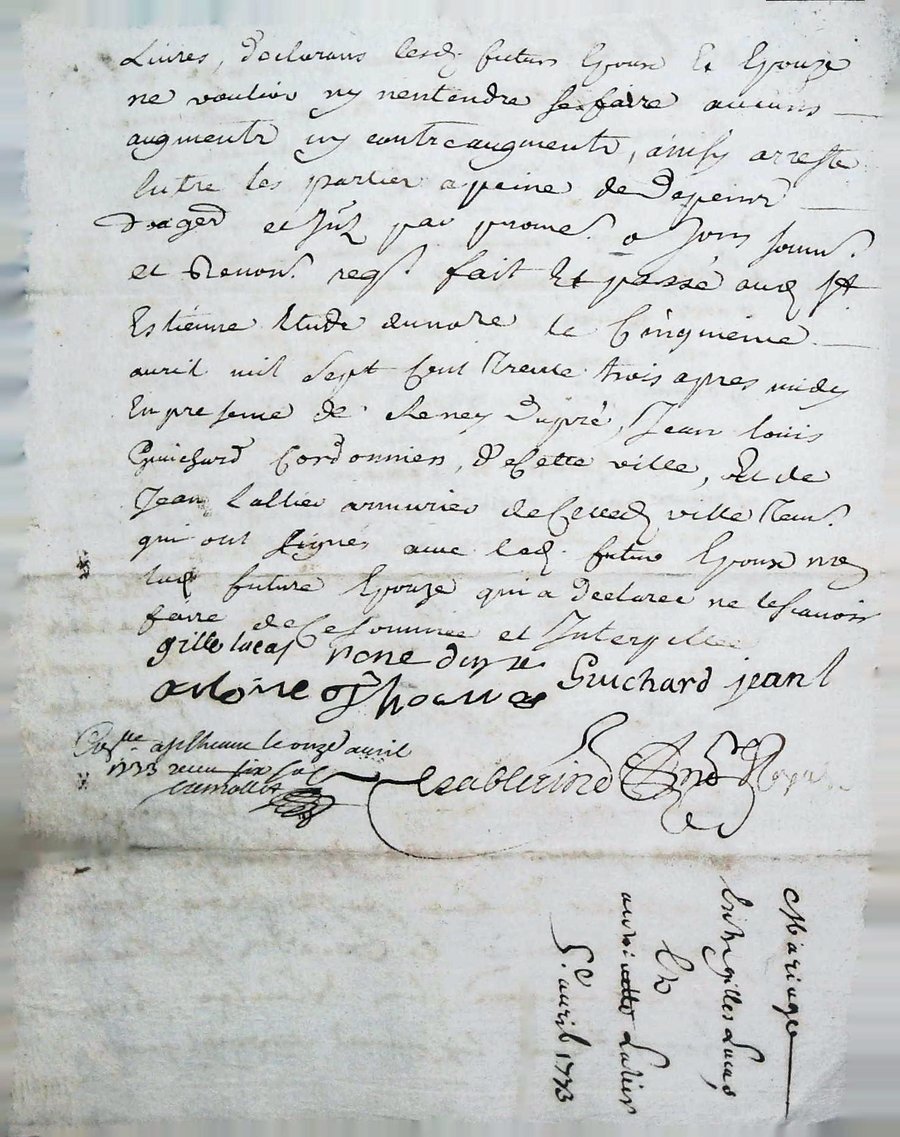 Livres, declarans lesd. futurs Epoux Et Epouze
ne vouloir ny nentendre se faire aucuns
augments ny contreaugments, ainsy arresté
Entre les parties a peine de Depens
et par promes.
et Renon. req. fait Et passé aud. St
Estienne Etude dunore le Cinquieme
avril mil Sept Cent Trente trois apres midy
En presence de Reney Dupré, Jean louis
Guichard Cordonnier, de Cette ville, Et de
Jean Lallier armurier de Cetted. ville Tem.
qui ont signés avec led. futur Epoux non
lad. future Epouze qui a declaree ne le scavoir
faire de Ce Sommée et Interpellée
gille lucas rone dupre Guichard jean l
antoine thomas
le onze avril
1733 receu six sols
Sablerino No. Royal
Mariage
Entre gilles Lucas
Et
Lalier
5.e avril 1733